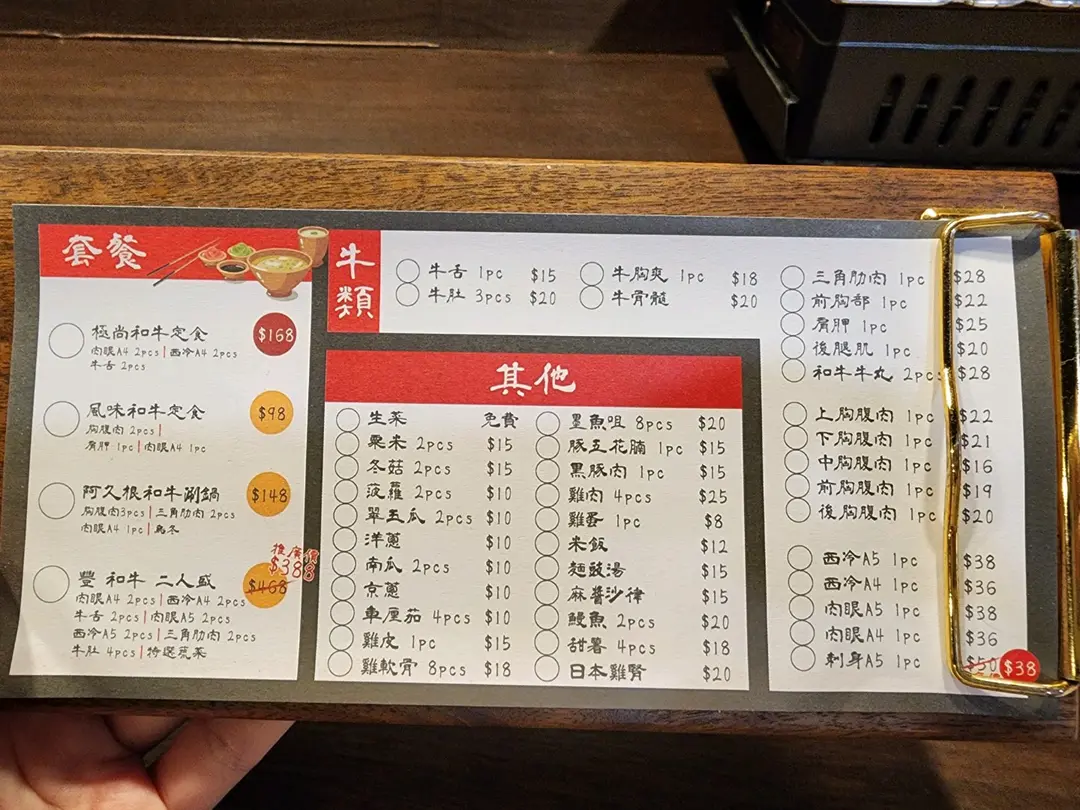 套餐
極尚和牛定食 $168
肉眼A4 2pcs | 西冷A4 2pcs
牛舌 2pcs
風味和牛定食 $98
胸腹肉 2pcs |
肩胛 1pc | 肉眼A4 1pc
阿久根和牛涮鍋 $148
胸腹肉3pcs | 三角肋肉 2pcs
肉眼A4 1pc | 烏冬
推廣價
$388
豐 和牛 二人盛 $468
肉眼A4 2pcs | 西冷A4 2pcs
牛舌 2pcs | 肉眼A5 2pcs
西冷A5 2pcs | 三角肋肉 2pcs
牛肚 4pcs | 特選蔬菜
牛類
牛舌 1pc $15
牛肚 3pcs $20
牛胸爽 1pc $18
牛骨髓 $20
三角肋肉 1pc $28
前胸部 1pc $22
肩胛 1pc $25
後腿肌 1pc $20
和牛牛丸 2pcs $28
上胸腹肉 1pc $22
下胸腹肉 1pc $21
中胸腹肉 1pc $16
前胸腹肉 1pc $19
後胸腹肉 1pc $20
西冷A5 1pc $38
西冷A4 1pc $36
肉眼A5 1pc $38
肉眼A4 1pc $36
刺身A5 1pc $50 $38
其他
生菜 免費
粟米 2pcs $15
冬菇 2pcs $15
菠蘿 2pcs $10
翠玉瓜 2pcs $10
洋蔥 $10
南瓜 2pcs $10
京蔥 $10
車厘茄 4pcs $10
雞皮 1pc $15
雞軟骨 8pcs $18
墨魚咀 8pcs $20
豚五花腩 1pc $15
黑豚肉 1pc $15
雞肉 4pcs $25
雞蛋 1pc $8
米飯 $12
麵豉湯 $15
麻醬沙律 $15
鰻魚 2pcs $20
甜薯 4pcs $18
日本雞腎 $20